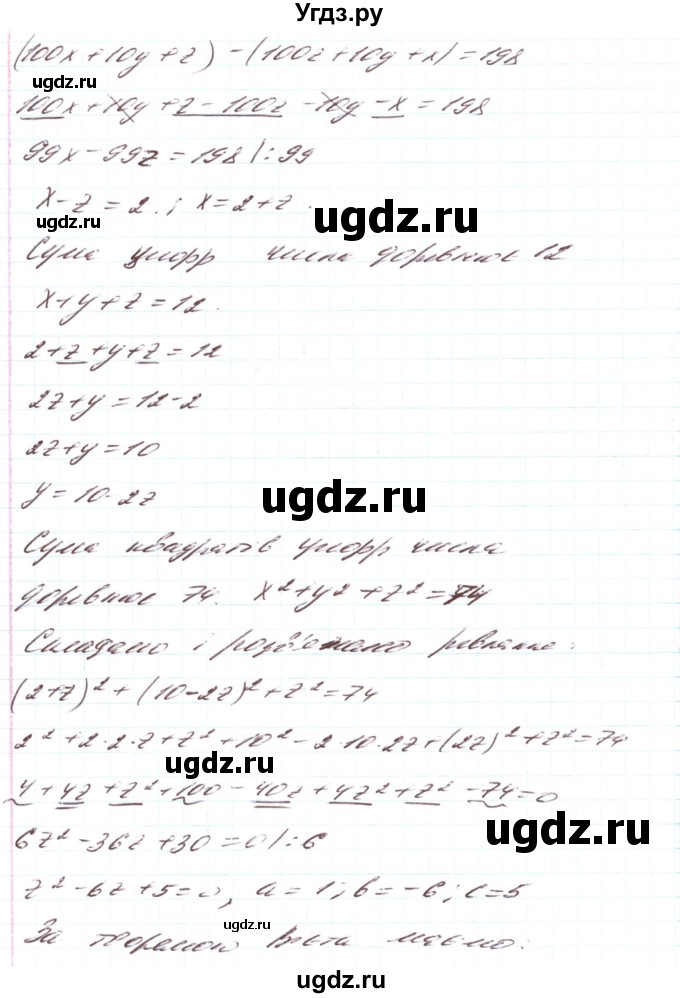 Угдз.ру
(100x+10y+z)-(100z+10y+x)=198
ugdz.ru
100x+10y+z-100z-10y-x=198
99x-99z=198 |:99
x-z=2.; x=2+z.
ugdz.ru
ugdz.ru
Сума цифр числа дорівнює 12
x+y+z=12.
2+z+y+z=12
2z+y=12-2
2z+y=10
y=10-2z
ugdz.ru
Сума квадратів цифр числа
дорівнює 74. x²+y²+z²=74
Складемо і розв'яжемо рівняння:
(2+z)²+(10-2z)²+z²=74
2²+2·2·z+z²+10²-2·10·2z+(2z)²+z²=74
ugdz.ru
4+4z+z²+100-40z+4z²+z²-74=0
ugdz.ru
6z²-36z+30=0 |:6
z²-6z+5=0, a=1; b=-6; c=5
ugdz.ru
За теоремою Вієта маємо:
ugdz.ru